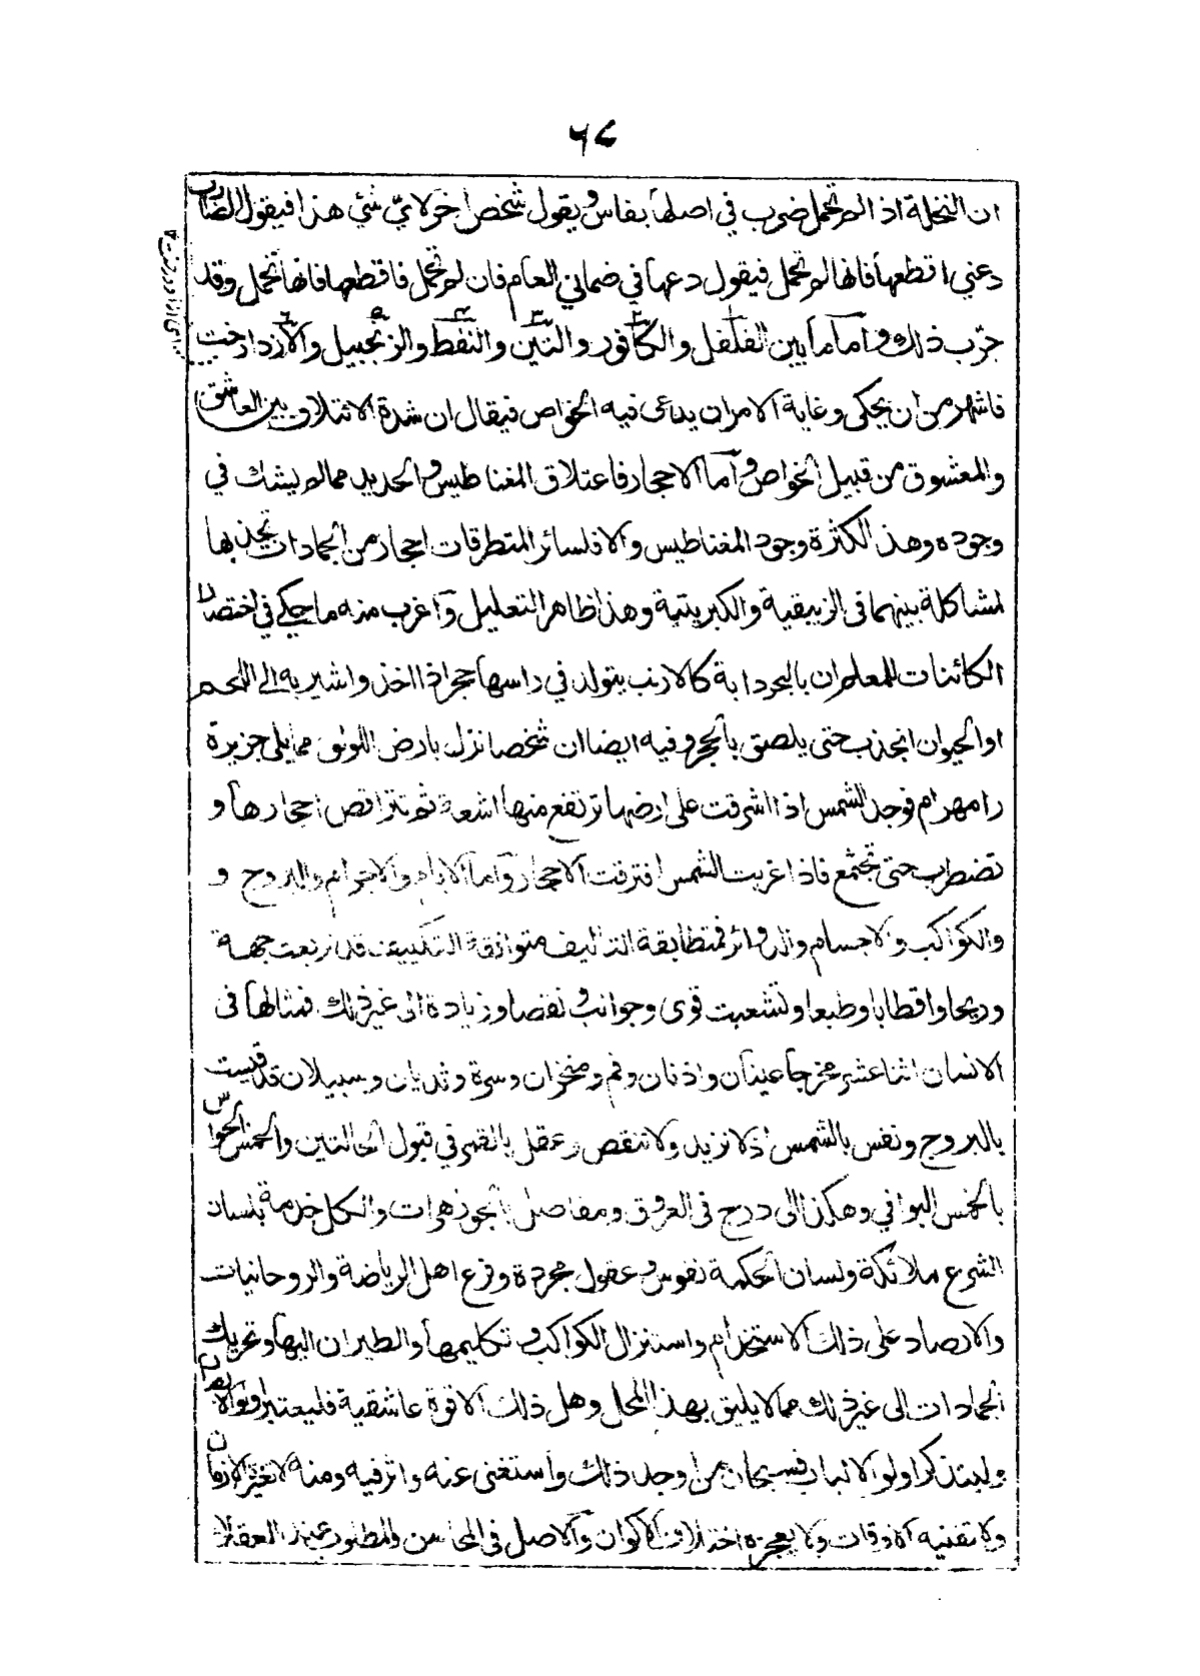 ٦٧
ان النخلة اذا لم تحمل ضرب في اصلها بفاس ويقول شخص اخر لاي شئ هذا فيقول الضارب
دعني اقطعها فانها لم تحمل فيقول دعها في ضماني العام فان لم تحمل فاقطعها فانها تحمل وقد
جرّب ذلك واما ما بين الفلفل والكافور والتين والنفط والزنجبيل والازدادرخت
فاشهر من ان يحكى وغاية الامر ان يدعى فيه الخواص فيقال ان شدة الائتلاف بين العاشق
والمعشوق من قبيل الخواص واما الاحجار فاعتلاق المغناطيس والحديد مما لم يشك في
وجوده وهذا لكثرة وجود المغناطيس والا فلسائر المتطرقات احجار من الجمادات تجذبها
لمشاكلة بينهما في الزيبقية والكبريتية وهذا ظاهر التعليل واغرب منه ما حكي في اختصار
الكائنات للمعلم ان بالبحر دابة كالارنب يتولد في راسها حجر اذا اخذ واشير به الى اللحم
او الحيوان انجذب حتى يلصق بالحجر وفيه ايضا ان شخصا نزل بارض اللوق مما يلي جزيرة
رامهرام فوجد الشمس اذا اشرقت على ارضها ترتفع منها اشعة ثم تتراقص احجارها و
تضطرب حتى تجتمع فاذا غربت الشمس افترقت الاحجار واما الايام والاجرام والبروج و
والكواكب والاجسام والدوائر فمتطابقة التاليف متوافقة التكييف قد تربعت جهة
وريحا واقطابا وطبعا وتشعبت قوى وجوانب ونقصا وزيادة الى غير ذلك فمثالها في
الانسان اثنا عشر مخرجا عينان واذنان وفم ومنخران وسرة وثديان وسبيلان قد قيست
بالبروج ونفس بالشمس اذ لا تزيد ولا تنقص وعقل بالقمر في قبول الحالتين والخمس الحواس
بالخمس البواقي وهكذا الى درج في العروق ومفاصل بالجوزهرات والكل خدمة بلسان
الشرع ملائكة ولسان الحكمة نفوس وعقول مجردة وفرع اهل الرياضة والروحانيات
والارصاد على ذلك الاستخدام واستنزال الكواكب وتكليمها والطيران اليها وتحريك
الجمادات الى غير ذلك مما لا يليق بهذا المحل وهل ذلك الا قوة عاشقية فليعتبر اولو الابصار
وليتذكر اولو الالباب فسبحان من اوجد ذلك واستغنى عنه واثر فيه ومنه لا تغيره الازمان
ولا تفنيه الاوقات ولا يعجزه اختلاف الاكوان والاصل في المحاسن والمطلوب عند العقلاء